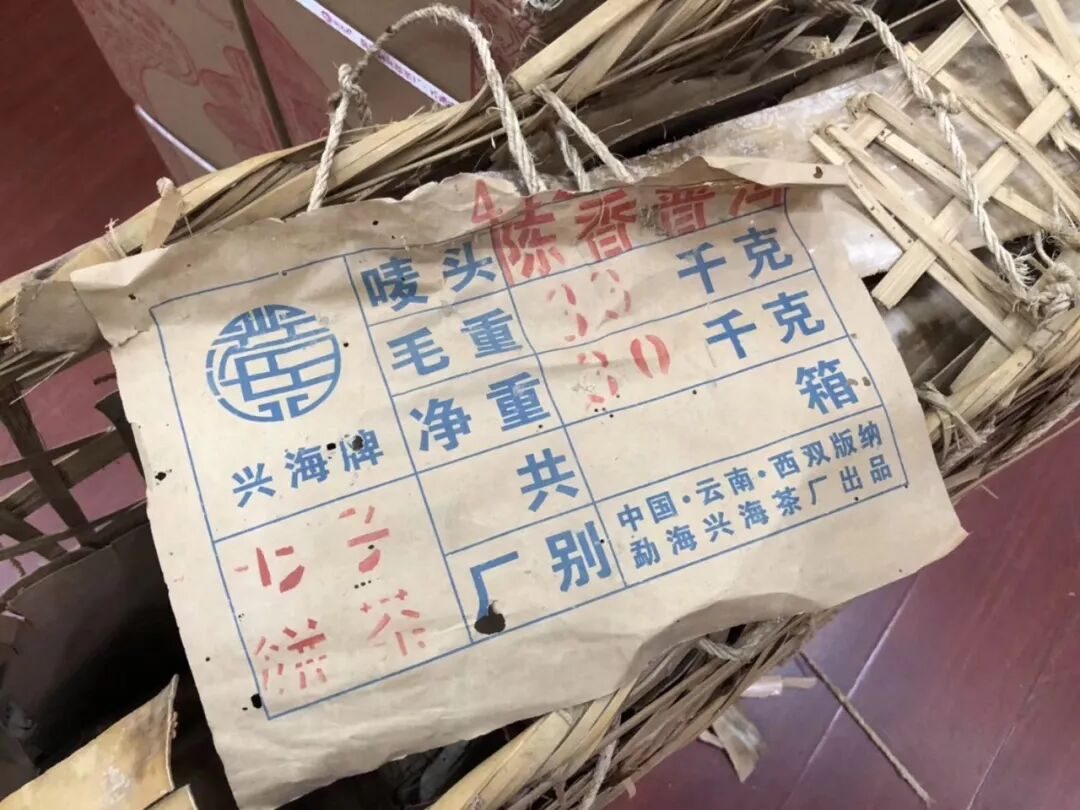 兴海牌
七子
饼茶
唛头 4 陈香普洱
毛重 千克
净重 30 千克
共 箱
厂别 中国·云南·西双版纳
勐海兴海茶厂出品